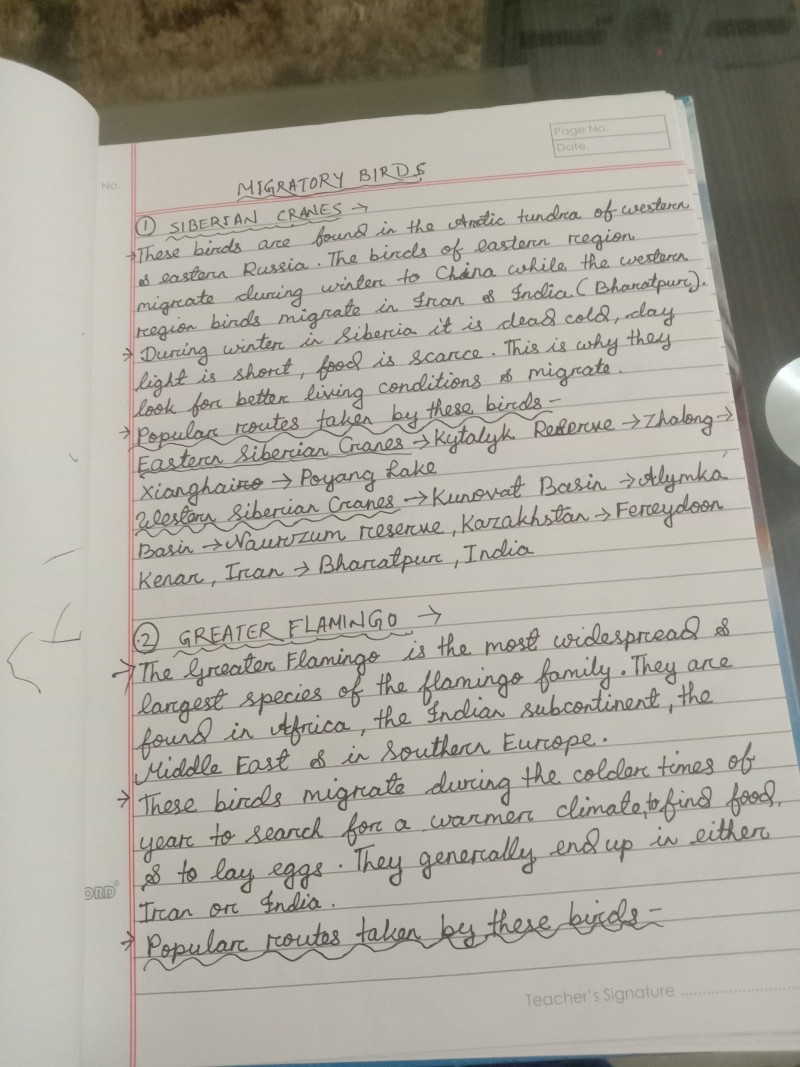 Page No.
Date.
No.
MIGRATORY BIRDS
① SIBERIAN CRANES →
→ These birds are found in the Arctic tundra of western
& eastern Russia. The birds of eastern region
migrate during winter to China while the western
region birds migrate in Iran & India (Bharatpur).
→ During winter in Siberia it is dead cold, day
light is short, food is scarce. This is why they
look for better living conditions & migrate.
→ Popular routes taken by these birds -
Eastern Siberian Cranes → Kytalyk Reserve → Zhalong →
Xianghai → Poyang Lake
Western Siberian Cranes → Kunovat Basin → Alymka
Basin → Naurzum reserve, Kazakhstan → Fereydoon
Kenar, Iran → Bharatpur, India
② GREATER FLAMINGO →
→ The Greater Flamingo is the most widespread &
largest species of the flamingo family. They are
found in Africa, the Indian subcontinent, the
Middle East & in Southern Europe.
→ These birds migrate during the colder times of
year to search for a warmer climate, to find food,
& to lay eggs. They generally end up in either
Iran or India.
→ Popular routes taken by these birds -
ORD
Teacher's Signature